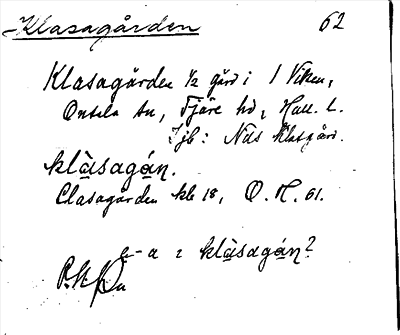 Klasagården 62
Klasagården 1/2 gård i 1 Viken,
Onsala sn, Fjäre hd, Hall. l.
Jfb: Näs Klasgård.
klàsagán.
Clasagården kb 18, O. H. 61.
a i klàsagán?